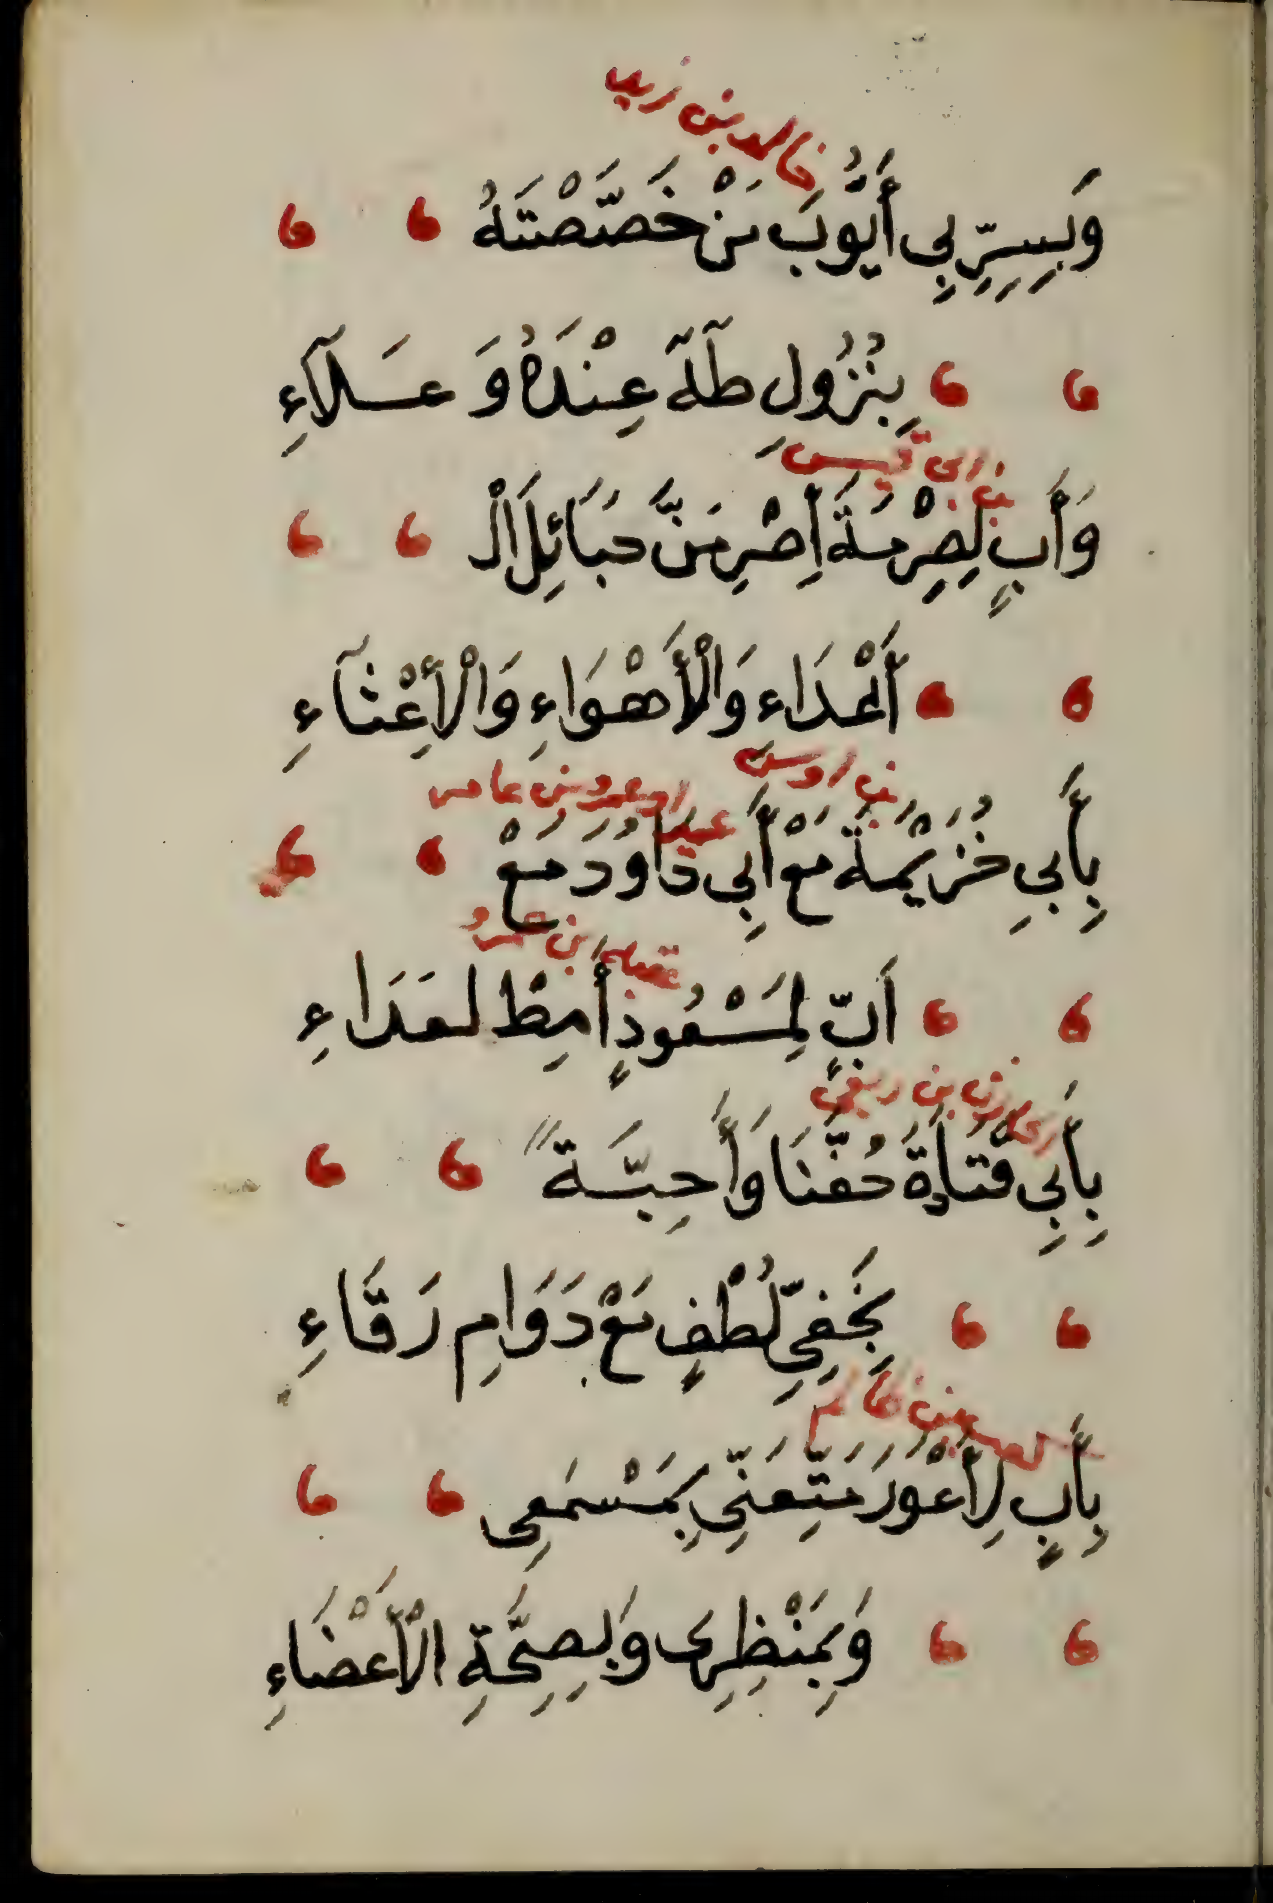 خالد بن زيد
وَبِسِرِّبِى أَيُّوبَ مَنْ خَصَّصْتَهُ
بِنُزُولِ طٰهٰٓ عِنْدَهُ وَ عَلَآءِ
بن ابى قيس
وَأَبٍ لِصِرْمَةَ اِصْرِمَنَّ حَبَائِلَ الْ
أَعْدَاءِ وَالْأَهْوَاءِ وَالْأَعْثَآءِ
بن اوس
عمير او عمرو بن عامر
بِأَبِي خُزَيْمَةَ مَعْ أَبِى دَاوُدَ مَعْ
بن عمرو
أَبّ لِمَسْعُودٍ أَمِطْ لعَدَاءِ
بن ربعى
بِأَبِي قَتَادَةَ حُفَّنَا وَأَحِبَّةً
بِخَفِىِّ لُطْفٍ مَعْ دَوَامِ رَقَاءِ
بن ظالم
بِأَبٍ لِأَعْوَرَ مَتِّعَنِّى بِمَسْمَعِى
وَبِمَنْظَرِى وَبِصِحَّةِ الْأَعْضَاءِ